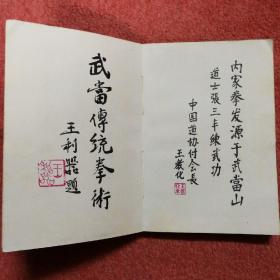 内家拳发源于武當山
道士張三丰練武功
中国道协付会長
王教化
武當傳統拳術
王利器題